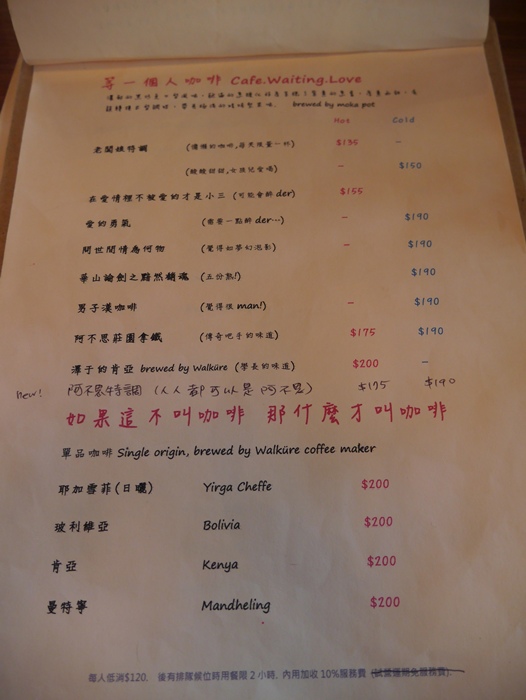 等一個人咖啡 Cafe.Waiting.Love
brewed by moka pot
Hot Cold
老闆娘特調 (慵懶的咖啡,每天限量一杯) $135 –
(酸酸甜甜,女孩兒會喝) – $150
在愛情裡不被愛的才是小三 (可能會醉der) $155
愛的勇氣 (需要一點醉der…) – $190
問世間情為何物 (覺得如夢幻泡影) – $190
華山論劍之黯然銷魂 (五份熟!) $190
男子漢咖啡 (覺得很man!) – $190
阿不思莊園拿鐵 (傳奇吧手的味道) $175 $190
澤于的肯亞 brewed by Walküre (學長的味道) $200 –
new! 阿不思特調 (人人都可以是阿不思) $175 $190
如果這不叫咖啡 那什麼才叫咖啡
單品咖啡 Single origin, brewed by Walküre coffee maker
耶加雪菲(日曬) Yirga Cheffe $200
玻利維亞 Bolivia $200
肯亞 Kenya $200
曼特寧 Mandheling $200
每人低消$120, 後有排隊候位時用餐限2小時, 內用加收10%服務費 (試營運期免服務費).